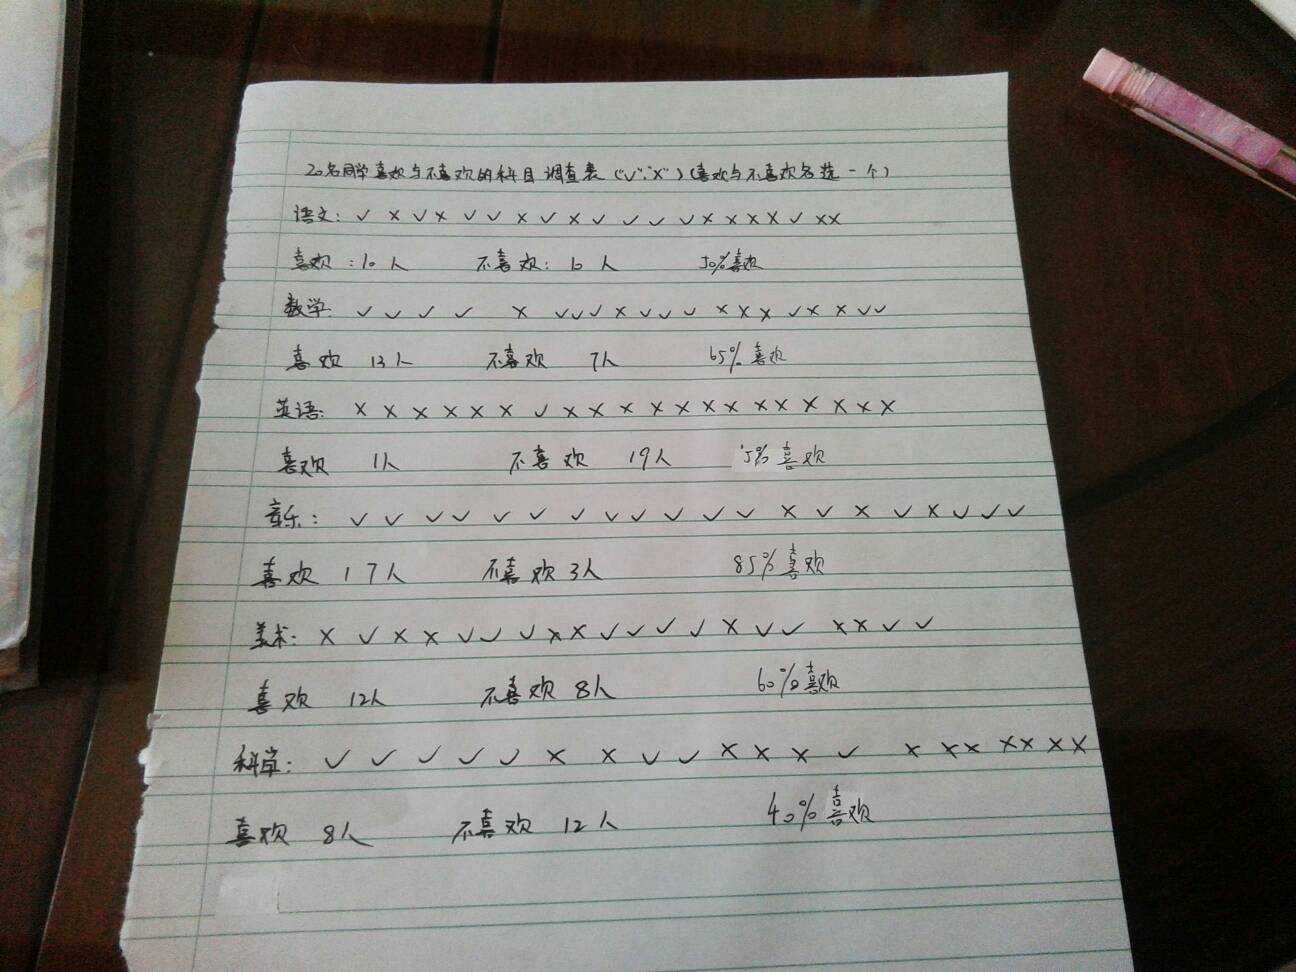 20名同学喜欢与不喜欢的科目调查表("√"∶"×")(喜欢与不喜欢各选一个)
语文: √ × √ × √ √ × √ × √ √ √ √ × × × × √ × ×
喜欢:10人 不喜欢:10人 50%喜欢
数学: √ √ √ √ × √ √ √ × √ √ √ × × × √ × × √ √
喜欢 13人 不喜欢 7人 65%喜欢
英语: × × × × × × √ × × × × × × × × × × × × ×
喜欢 1人 不喜欢 19人 5%喜欢
音乐: √ √ √ √ √ √ √ √ √ √ √ √ × √ × √ × √ √ √
喜欢 17人 不喜欢 3人 85%喜欢
美术: × √ × × √ √ √ × × √ √ √ √ × √ √ × × √ √
喜欢 12人 不喜欢 8人 60%喜欢
科学: √ √ √ √ √ × × √ √ × × × √ × × × × × × ×
喜欢 8人 不喜欢 12人 40%喜欢